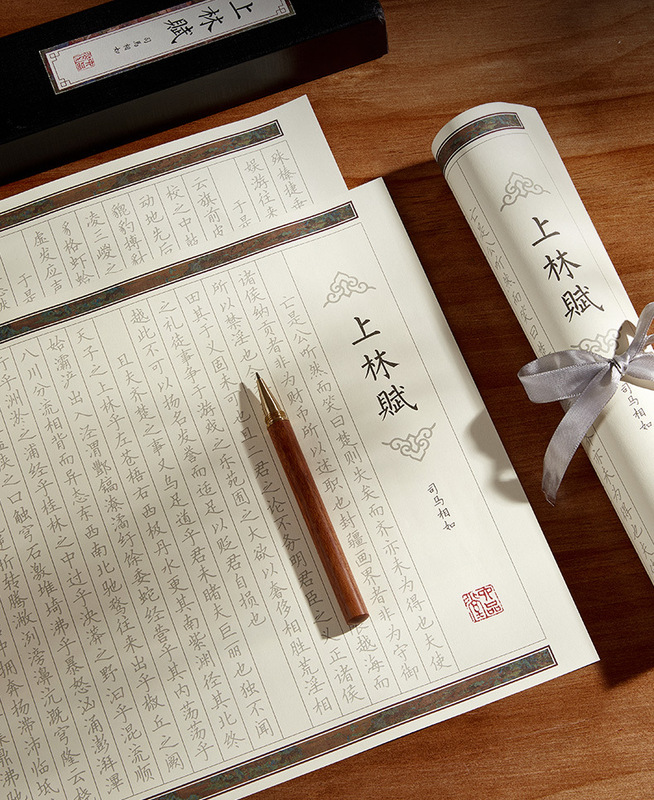 上林賦
司馬相如
殊榛捷垂
娱游往来
于是
云旗前皮
校之中鼓
动地先后
貔豹搏豺
凌三嵕之
格虾蛤
虚发应声
于是
上林賦
司马相如
亡是公听然而笑曰楚则失矣而齐亦未为得也夫使
诸侯纳贡者非为财币所以述职也封疆画界者非为守御
所以禁淫也 限越海而
田其于义固未可也且二君之论不务明君臣之义正诸侯
之礼徒事争于游戏之乐苑囿之大欲以奢侈相胜荒淫相
越此不可以扬名发誉而适足以贬君自损也
且夫齐楚之事又乌足道乎君未睹夫巨丽也独不闻
天子之上林乎左苍梧右西极丹水更其南紫渊径其北终
始灞浐出入泾渭酆镐潦潏纡馀委蛇经营乎其内荡荡乎
八川分流相背而异态东西南北驰骛往来出乎椒丘之阙
乎洲淤之浦经乎桂林之中过乎泱漭之野汩乎混流顺
狭之口触穹石激堆埼沸乎暴怒汹涌澎湃滭
折转腾潎洌滂濞沆溉穹隆云桡
拥奔扬滞沛临坻
鼎沸驰
上林賦
司马相如
亡是公听然而笑曰楚
为得也